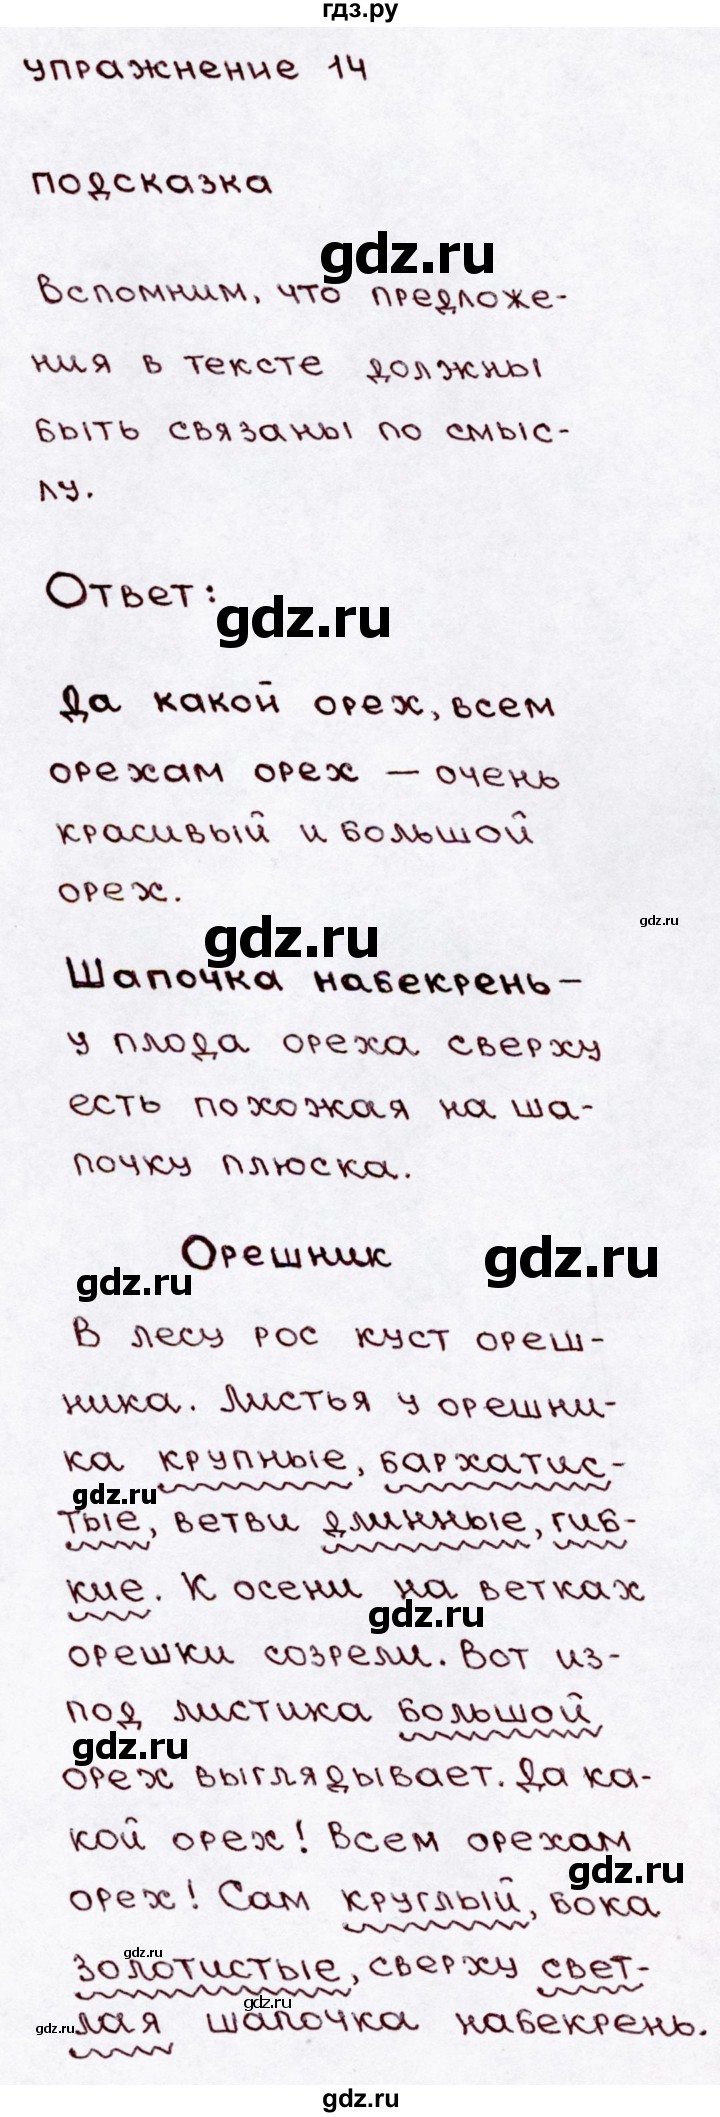 гдз.ру
упражнение 14
подсказка
gdz.ru
Вспомним, что предложе-
ния в тексте должны
быть связаны по смыс-
лу.
Ответ:
gdz.ru
Да какой орех, всем
орехам орех — очень
красивый и большой
орех.
gdz.ru
gdz.ru
Шапочка набекрень —
у плода ореха сверху
есть похожая на ша-
почку плюска.
Орешник
gdz.ru
gdz.ru
В лесу рос куст ореш-
ника. Листья у орешни-
ка крупные, бархатис-
gdz.ru
тые, ветви длинные, гиб-
кие. К осени на ветках
gdz.ru
орешки созрели. Вот из-
под листика большой
gdz.ru
орех выглядывает. Да ка-
кой орех! Всем орехам
gdz.ru
орех! Сам круглый, бока
gdz.ru
золотистые, сверху свет-
gdz.ru
gdz.ru
лая шапочка набекрень.
gdz.ru